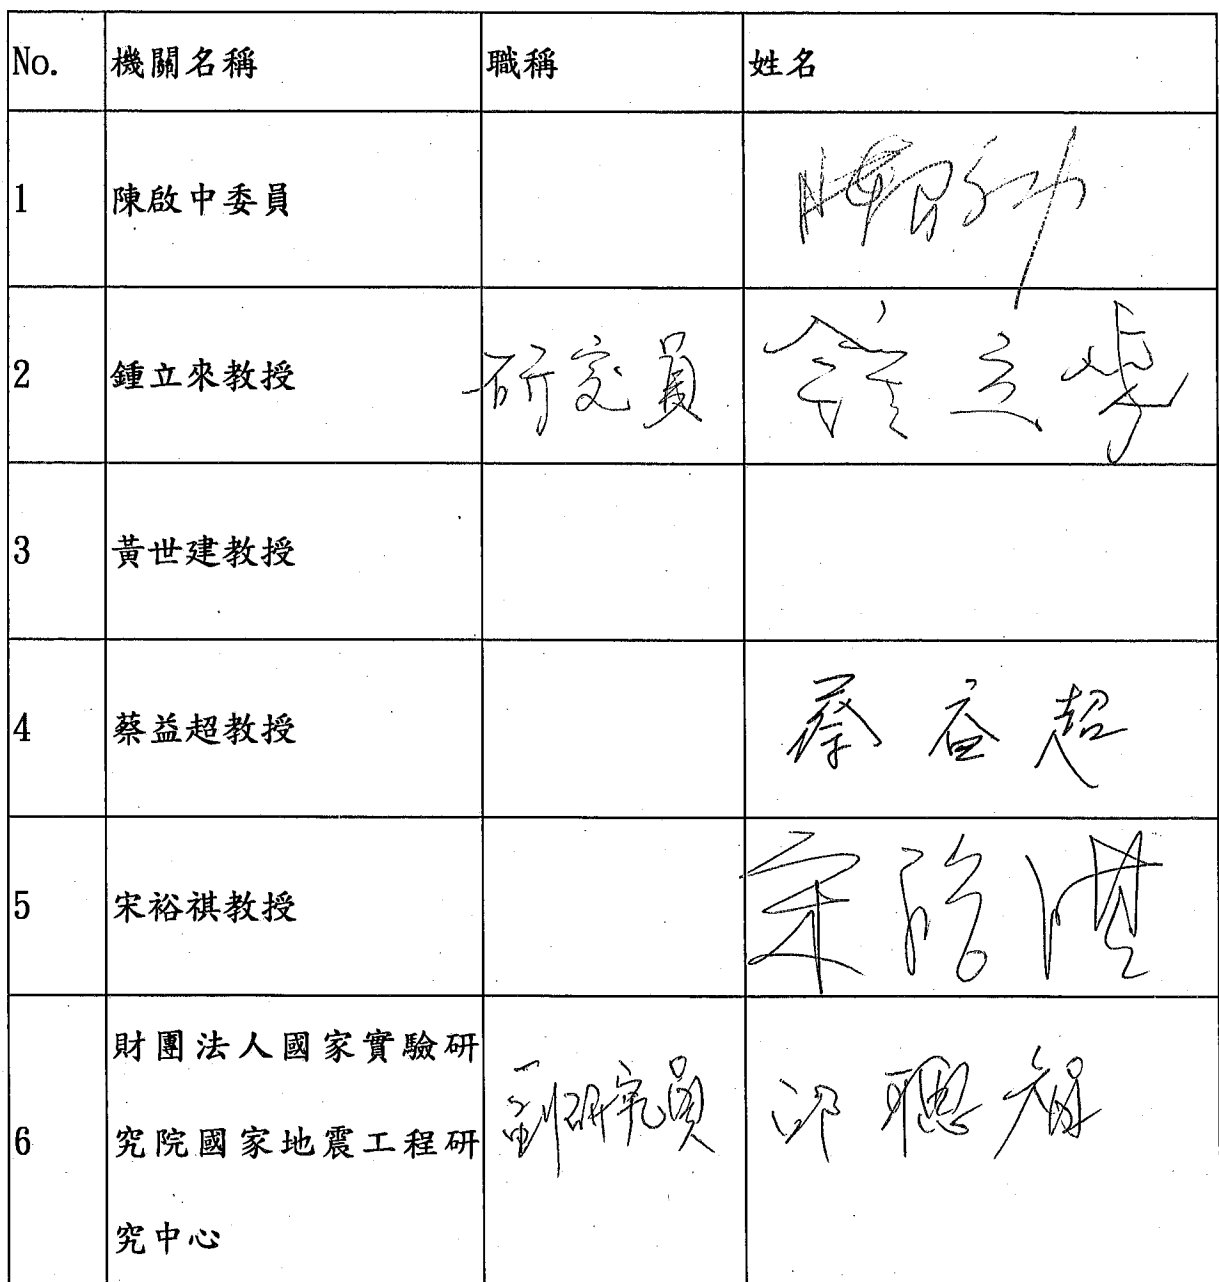 No. 機關名稱 職稱 姓名
1 陳啟中委員
2 鍾立來教授 研究員 鍾立來
3 黃世建教授
4 蔡益超教授 蔡益超
5 宋裕祺教授 宋裕祺
財團法人國家實驗研
6 究院國家地震工程研 副研究員 邱聰智
究中心